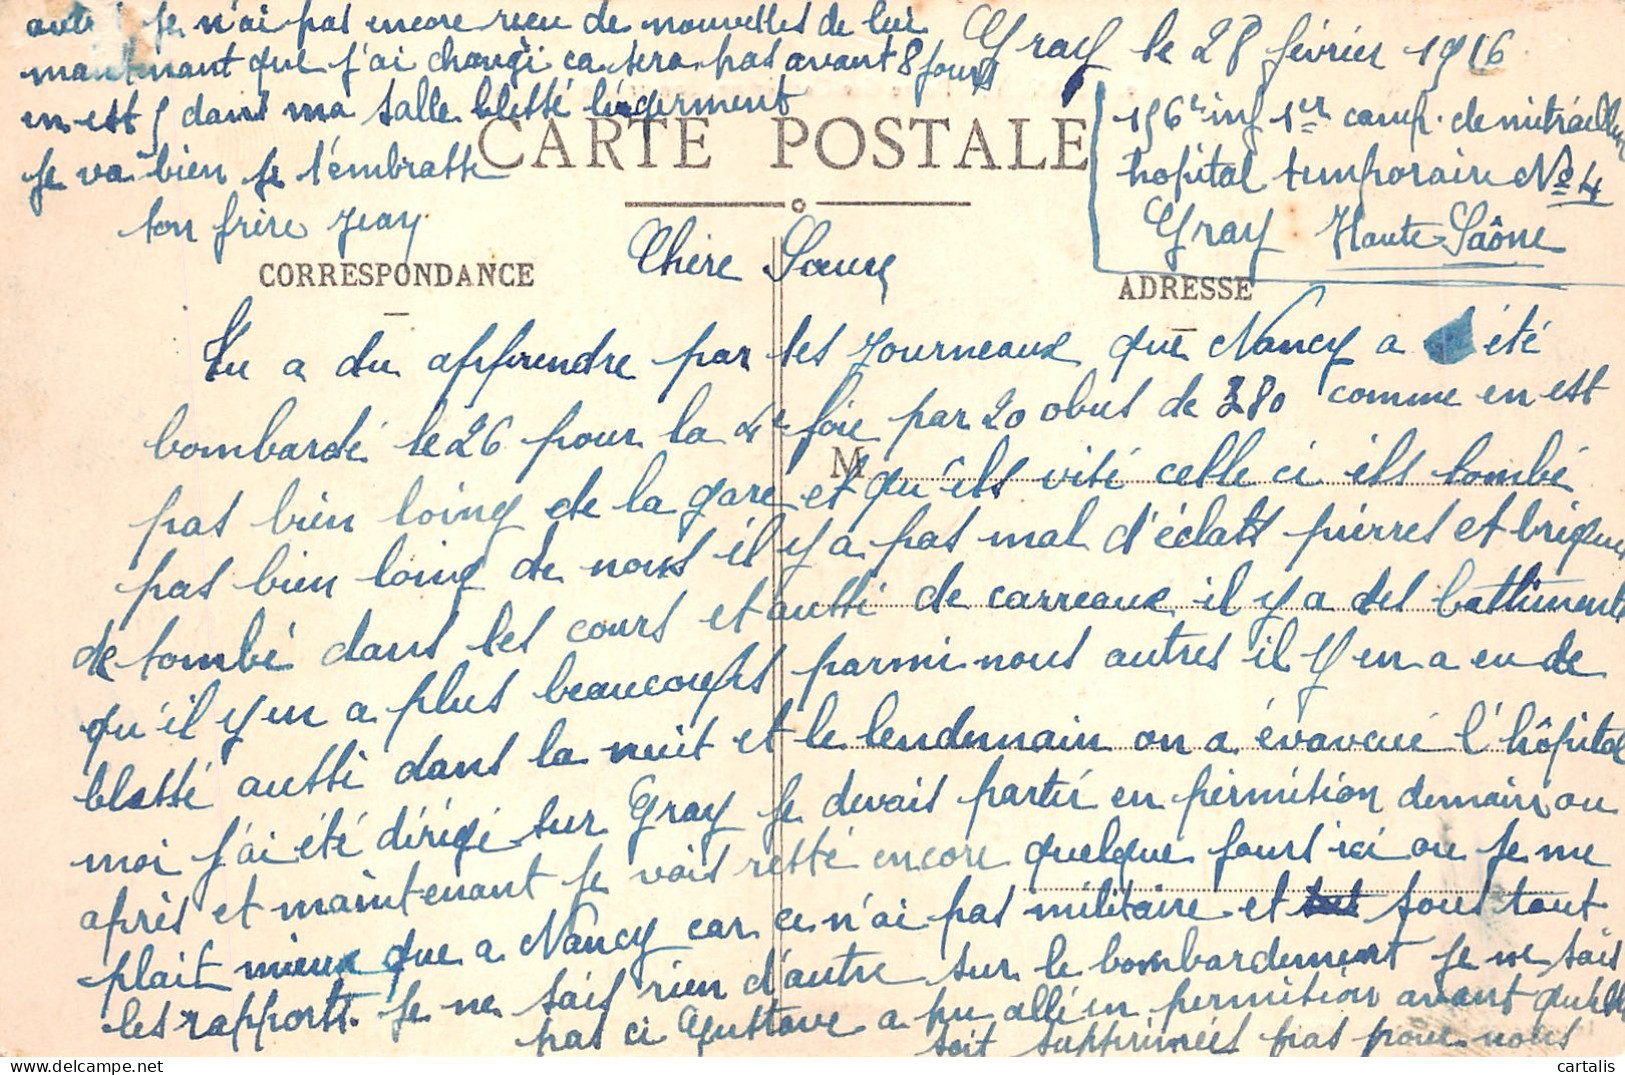 Gray le 28 février 1916
156e inf 1er comp. de mitrailleu
hopital temporaire No 4
Gray Haute-Saône
CARTE POSTALE
CORRESPONDANCE
ADRESSE
M
Chere Soeur
Tu a du apprendre par les journeaux que Nancy a été
bombardé le 26 pour la 4e fois par 20 obus de 380 comme en est
pas bien loing de la gare et qu'ils visé celle ci ils tombé
pas bien loing de nous il y a pas mal d'éclats pierres et briques
de tombé dans les cours et aussi de carreaux il y a des battiments
qu'il y en a plus beaucoups parmi nous autres il y en a eu de
blessé aussi dans la nuit et le lendemain on a évavcué l'hôpital
moi j'ai été dirigé sur Gray je devais partir en pèrmision demain ou
après et maintenant je vais resté encore quelque jours ici ou je me
plait mieux que a Nancy car ce n'ai pas militaire et sous tout
les rapports. Je ne sais rien d'autre sur le bombardement je ne sais
pas ci Gustave a pu allé en permision avant qu'elle
soit supprimées pas pour nous
je n'ai pas encore recu de nouvelles de lui
maintenant que j'ai changé ca sera pas avant 8 jours
en est 5 dans ma salle blessé légerment
je va bien je t'embrasse
ton frère Jean
cartalis